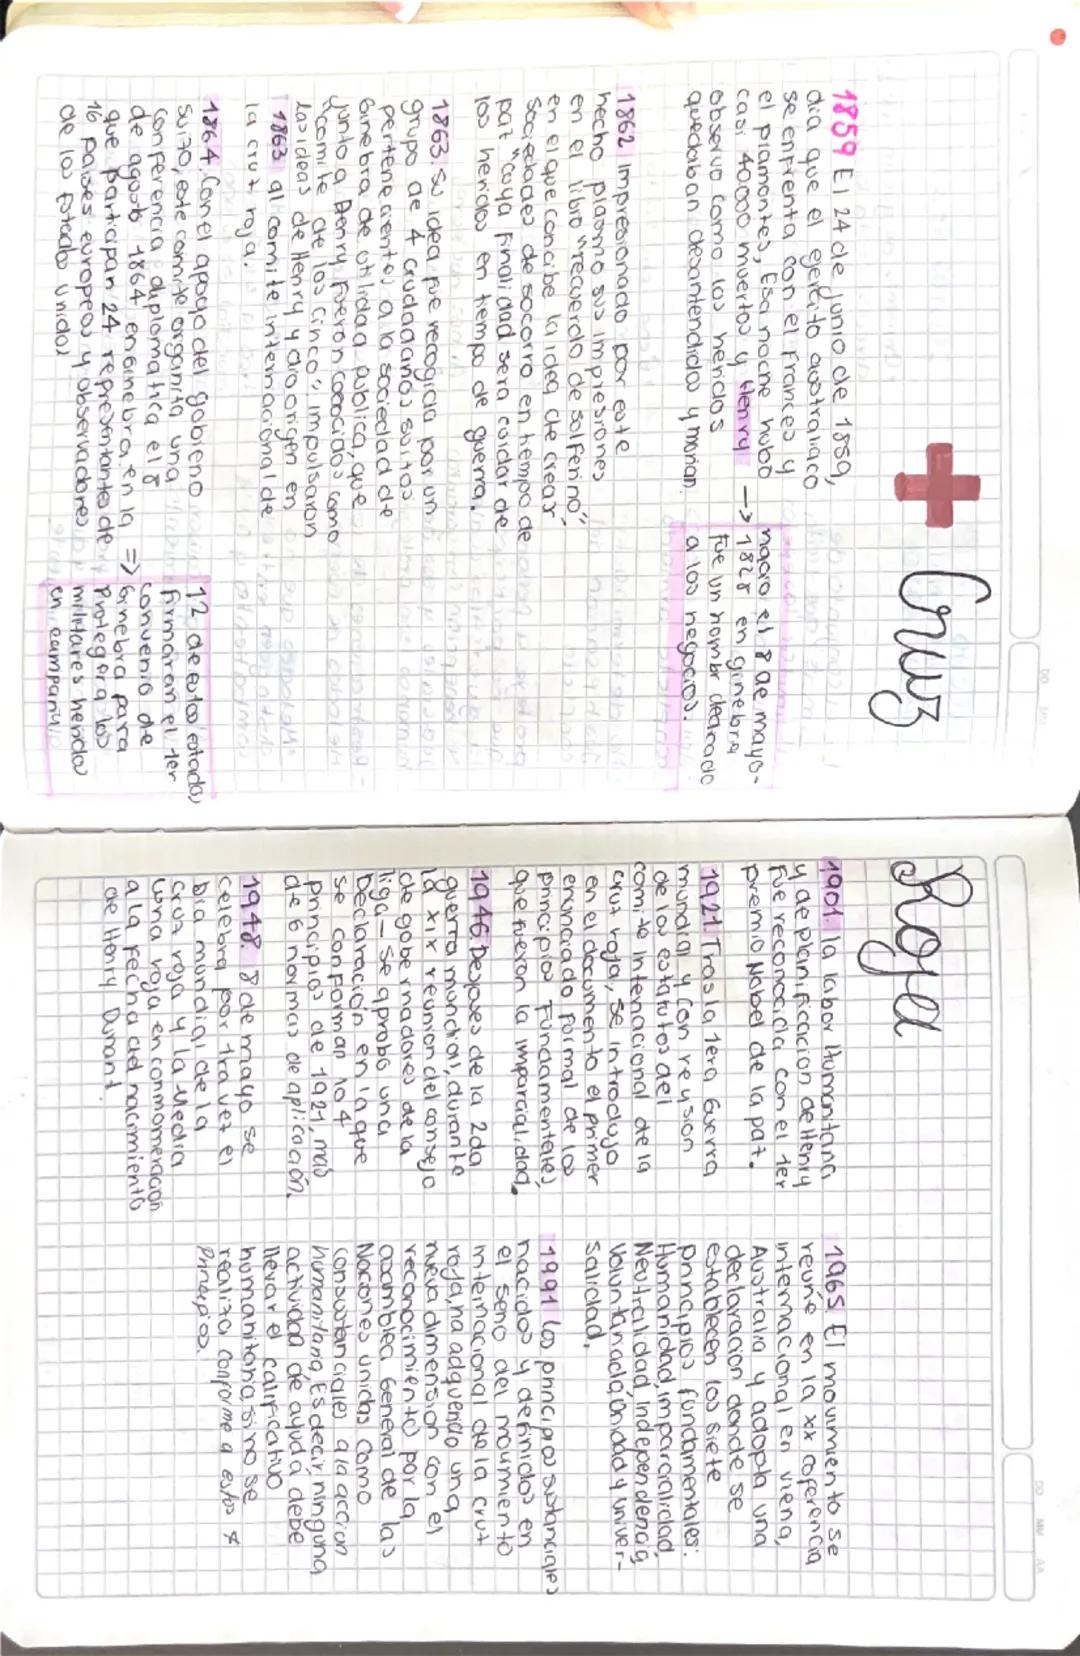 Cruz
1859 El 24 de junio de 1859,
dia que el ejercito australiaco
se enfrenta con el frances y
el piamontes, Esa noche hubo
casi 40000 muertos y Henry →
observo como los heridos
quedaban desantendidos y morian.
nacio el 8 de mayo-
1828 en ginebra
fue un hombr dedicado
a los negocios.
1862 Impresionado por este
hecho plasmo sus impresiones
en el libro "recuerdo de solferino",
en el que concibe la idea de crear
sociedades de socorro en tiempo de
paz "cuya finalidad sera cuidar de
los heridos en tiempo de guerra.
1863. su idea fue recogida por un
grupo de 4 ciudadanos suizos
perteneciente a la sociedad de
Ginebra de utilidad publica, que
junto a Henry, fueron conocidos como
"comite de los cinco", impulsaron
las ideas de Henry y dio origen en
1863 al comite internacional de
la cruz roja.
1864. Con el apoyo del gobieno
suizo, este comite organiza una
conferencia diplomatica el 8
de agosto 1864, en ginebra, en la =>
que participan 24 representantes de
16 paises europeos y observadores
de los Estados unidos
12 de estos estados
firmaran el 1er
convenio de
Ginebra para
proteger a los
militares heridos
en campaña
Roja
1901. la labor Humanitaria
y de planificacion de Henry
fue reconocida con el 1er
premio Nobel de la paz.
1921. Tras la 1era Guerra
mundial y con revision
de los estatutos del
comite intenacional de la
cruz roja, se introdujo
en el documento el primer
enunciado formal de los
principios Fundamentales,
que fueron la imparcialidad.
1946. Despues de la 2da
guerra mundial, durante
la xix reunion del consejo
de gobernadores de la
liga- se aprobo una
Declaracion en la que
se conforman lo 4
principios de 1921, mas
de 6 normas de aplicación.
1948 8 de mayo se
celebra por 1ra vez el
Dia mundial de la
cruz roja y la Media
luna roja en conmomeracion
a la fecha del nacimiento
de Henry Dunant.
1965. El movimiento se
reune en la xx coferencia
internacional en viena,
Australia y adopta una
declaracion donde se
establecen los siete
principios fundamentales:
Humanidad, imparcialidad,
Neutralidad, Independencia,
Voluntariado, Unidad y univer-
salidad.
1991 los principos sustanciales
nacidos y definidos en
el seno del moumiento
internacional de la cruz
roja, ha adquerido una
nueva dimension con el
reconocimiento por la
asamblea General de las
Nacones unidas como
consustanciales a la accion
humanitaria, Es decir ninguna
actividad de ayuda debe
llevar el calificativo
humanitaria, si no se
realiza conforme a estos
Principios.
DD MM AA